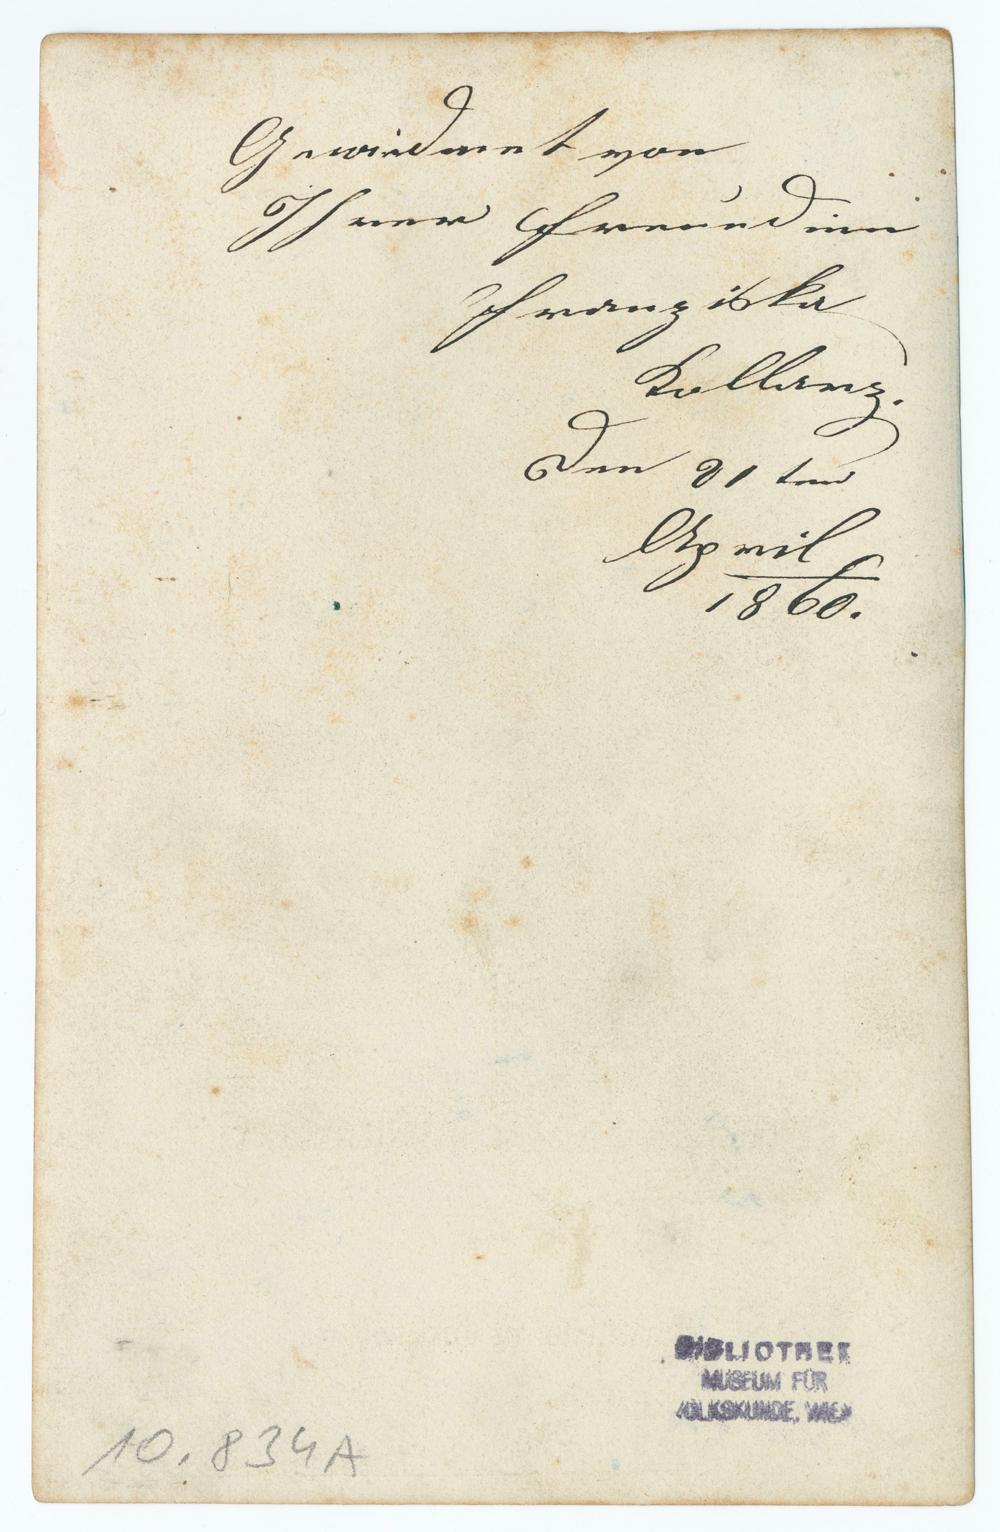 Gewidmet von
Ihrer Freundinn
Franziska
Kollanz.
Den 21 ten
April
1860.
BIBLIOTHEK
MUSEUM FÜR
VOLKSKUNDE, WIEN
10.834A